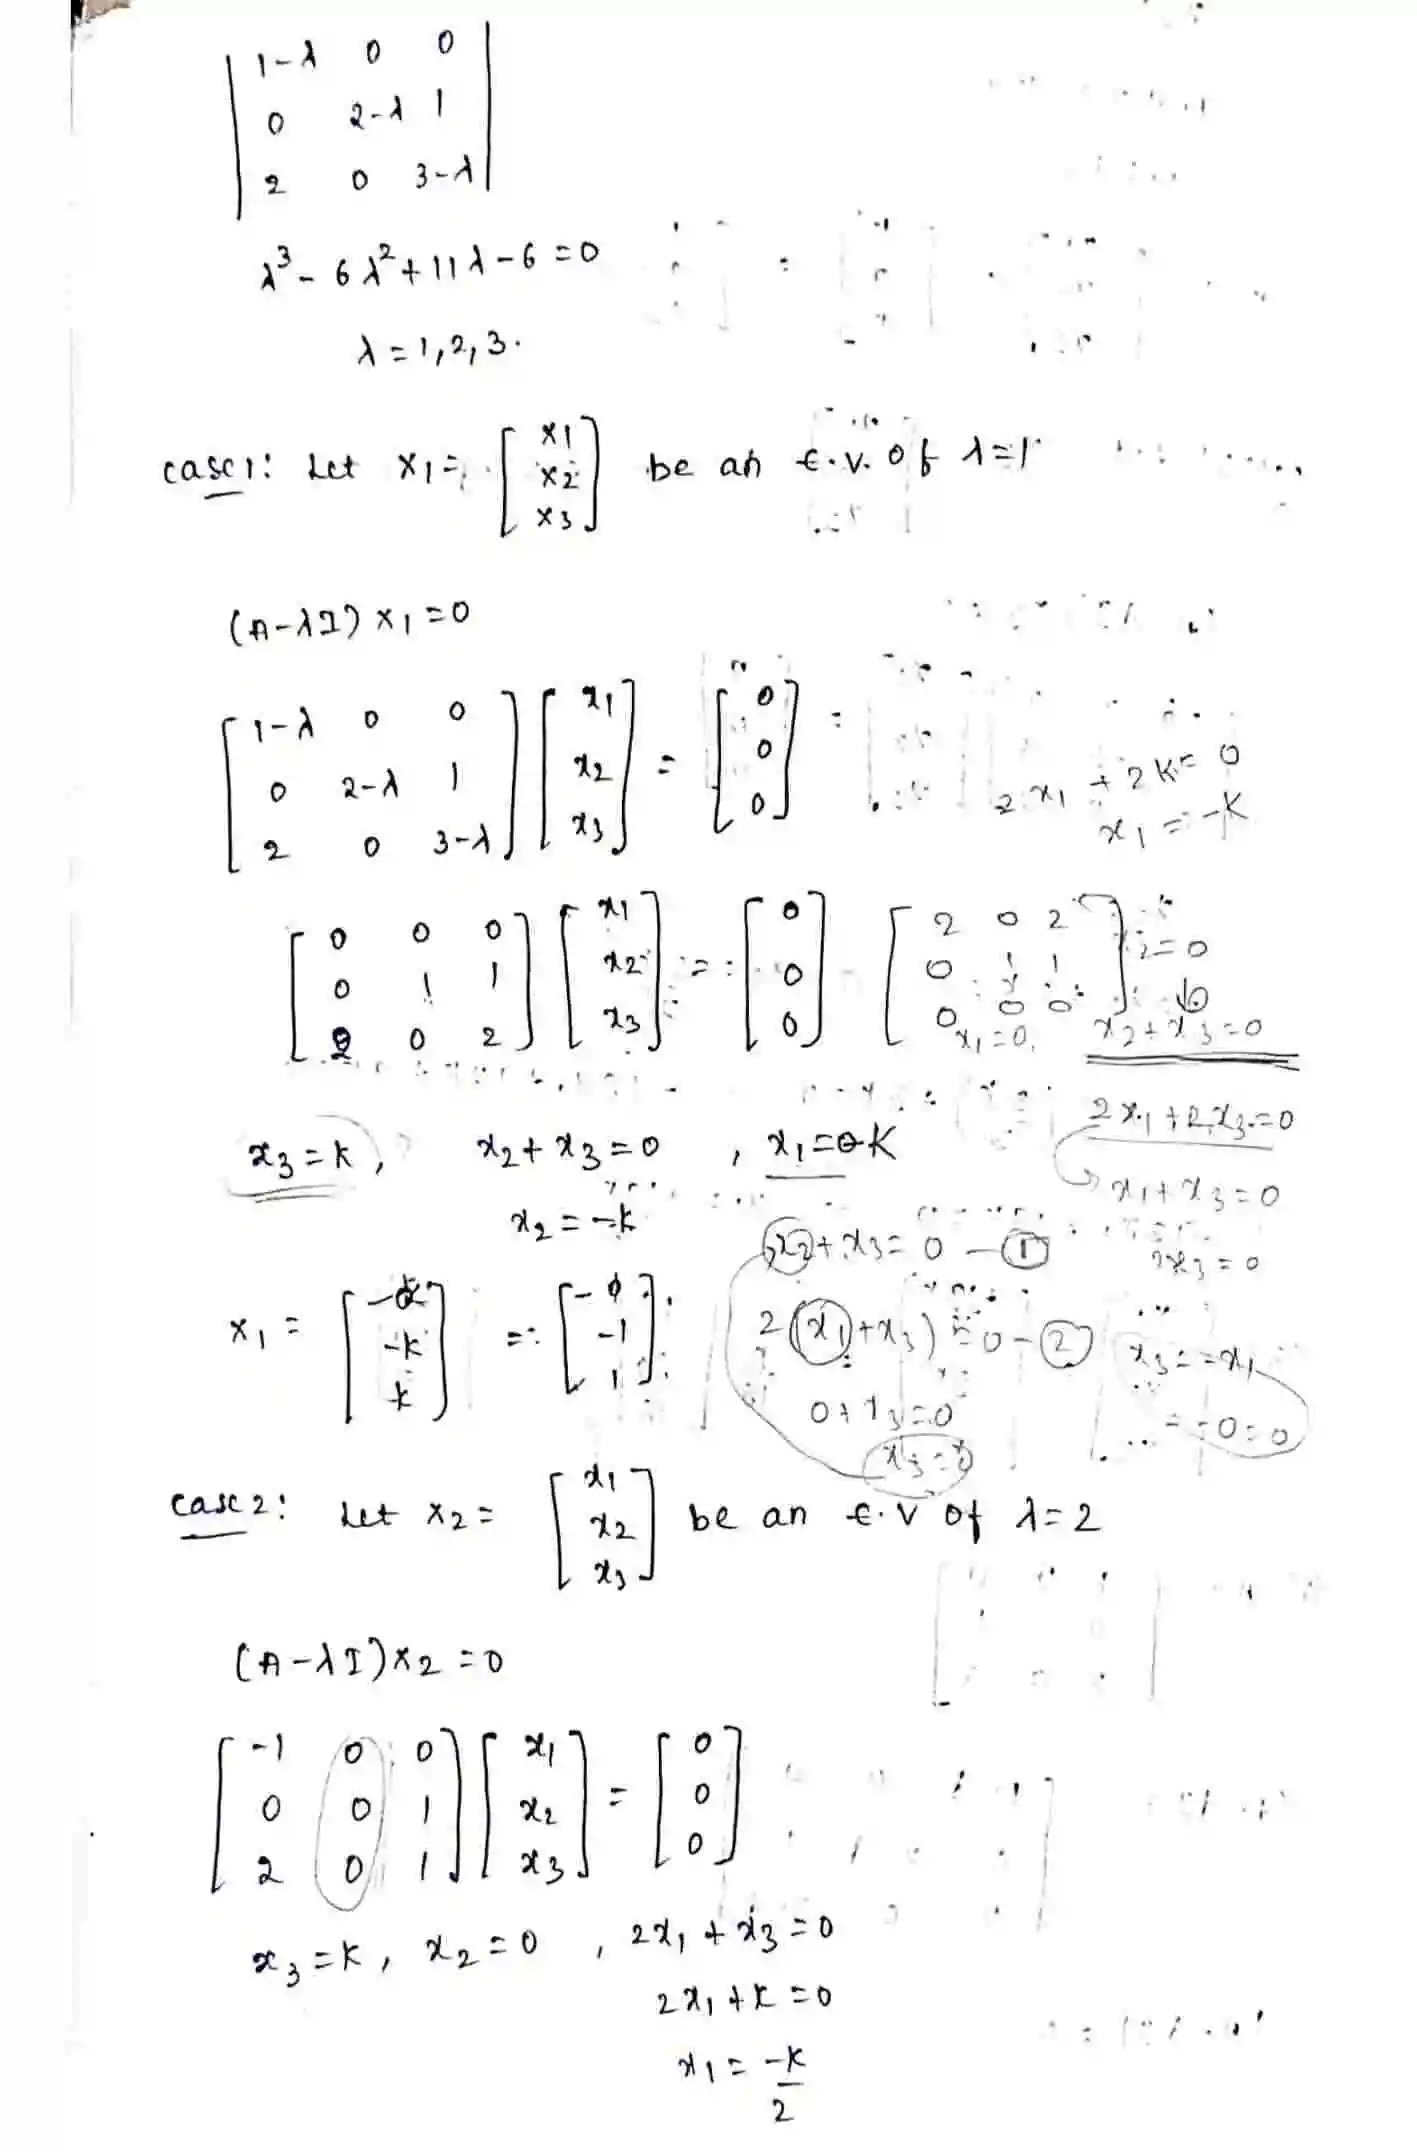 | 1-λ 0 0 |
| 0 2-λ 1 |
| 2 0 3-λ |
λ³ - 6λ² + 11λ - 6 = 0
λ = 1, 2, 3.
case 1: Let x1 = [x1 x2 x3] be an E.V. Of λ=1
(A-λI) x1 = 0
[1-λ 0 0; 0 2-λ 1; 2 0 3-λ] [x1; x2; x3] = [0; 0; 0]
2x1 + 2k = 0
x1 = -k
[0 0 0; 0 1 1; 2 0 2] [x1; x2; x3] = [0; 0; 0] [2 0 2; 0 1 1; 0 0 0]
x1=0, x2+x3=0
x3 = k, x2 + x3 = 0, x1 = k
2x1 + 2x3 = 0
x1 + x3 = 0
x2 = -k
x2 + x3 = 0 - ①
x1 = [-k; -k; k] = [-1; -1; 1]
2(x1 + x3) = 0 - ②
x3 = -x1
= -0 = 0
0 + x3 = 0
case 2: Let x2 = [x1; x2; x3] be an E.V Of λ=2
(A-λI) x2 = 0
[-1 0 0; 0 0 1; 2 0 1] [x1; x2; x3] = [0; 0; 0]
x3 = k, x2 = 0, 2x1 + x3 = 0
2x1 + k = 0
x1 = -k/2